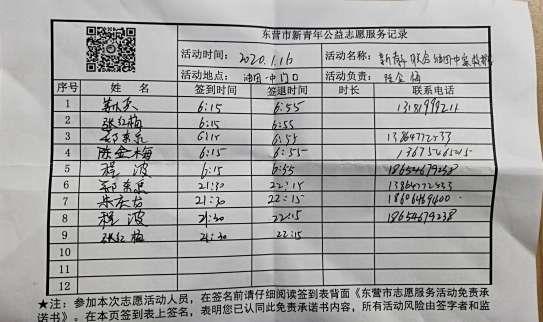 东营市新青年公益志愿服务记录
活动时间： 2020.1.16 活动名称：
活动地点： 油田一中门口 活动负责： 陈金梅
序号 姓 名 签到时间 签退时间 时长 联系电话
1 6:15 6:55
2 张红梅 6:15 6:55
3 6:15 6:55 13864772433
4 陈金梅 6:15 6:55
5 程波 6:15 6:55 18654679238
6 21:30 22:15 13864772433
7 21:30 22:15 18606469600
8 程波 21:30 22:15 18654679238
9 张红梅 21:30 22:15
10
11
12
★注：参加本次志愿活动人员，在签名前请仔细阅读签到表背面《东营市志愿服务活动免责承
诺书》。在本页签到表上签名，表明您已认同此免责承诺书内容，所有活动风险由签字者和监